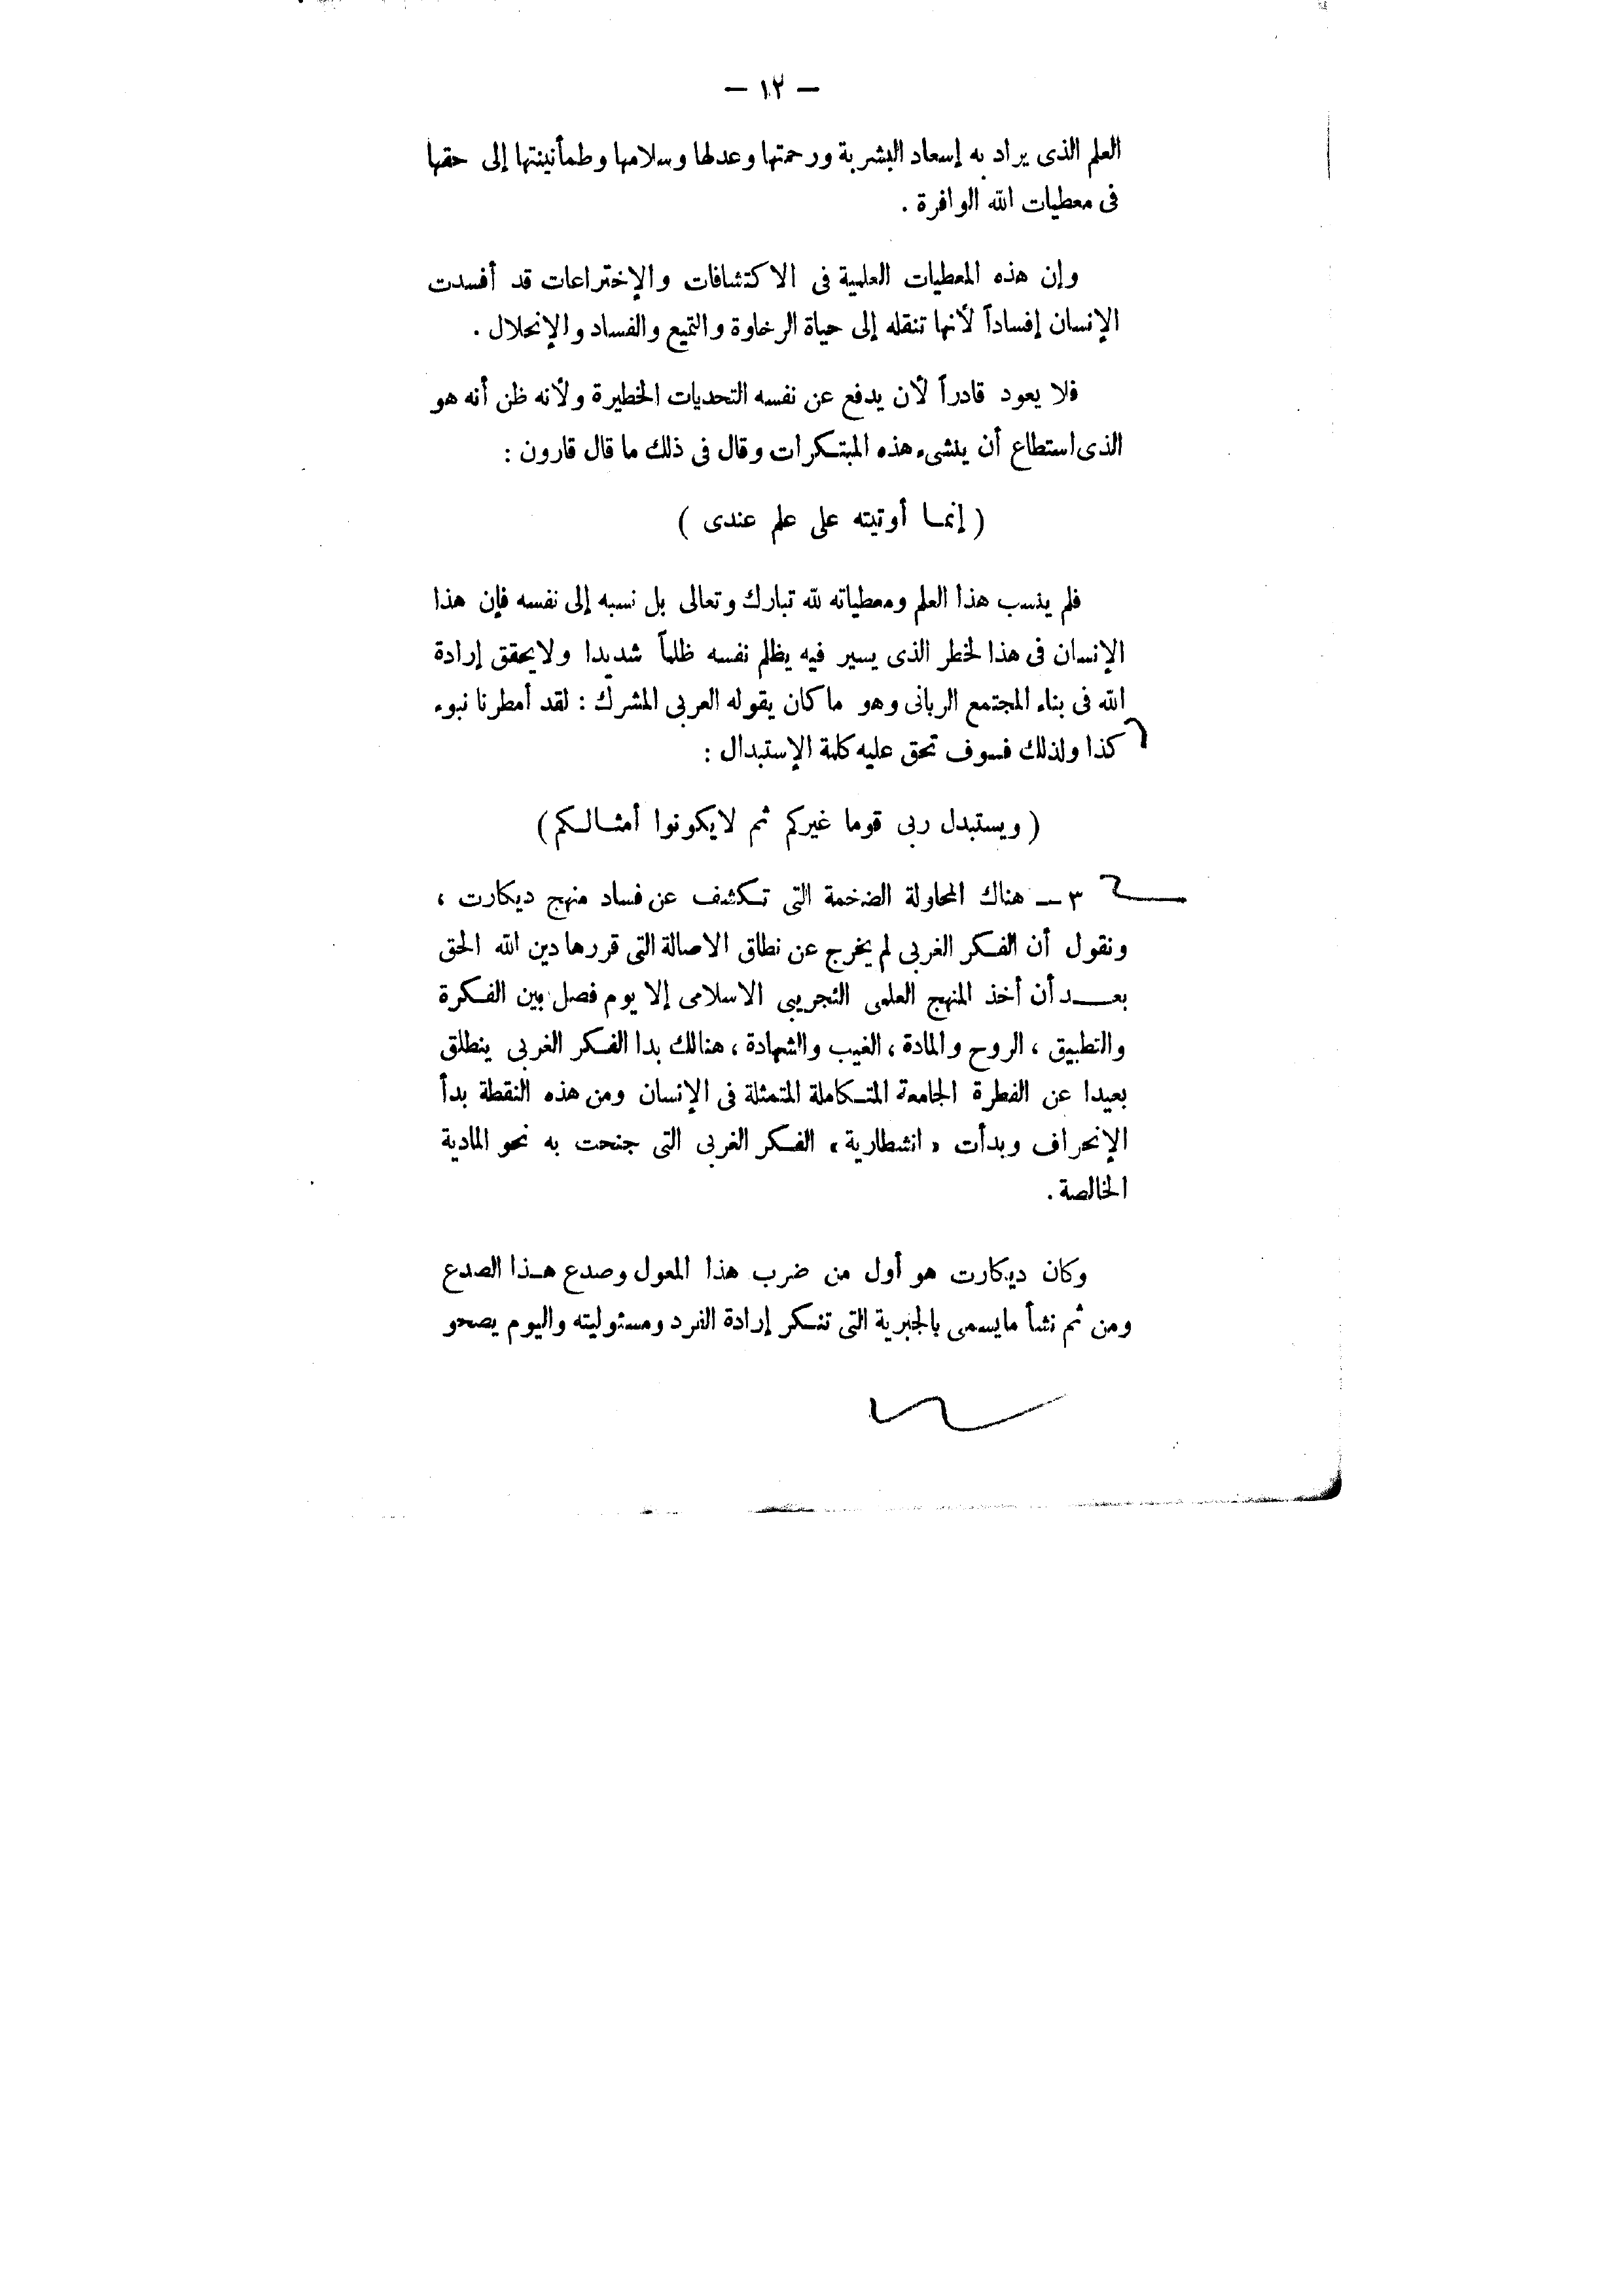 — ١٢ —
العلم الذى يراد به إسعاد البشرية ورحمتها وعدلها وسلامها وطمأنينتها إلى حقها
فى معطيات الله الوافرة .
وإن هذه المعطيات العلمية فى الاكتشافات والإختراعات قد أفسدت
الإنسان إفساداً لأنها تنقله إلى حياة الرخاوة والتميع والفساد والإنحلال .
فلا يعود قادراً لأن يدفع عن نفسه التحديات الخطيرة ولأنه ظن أنه هو
الذى استطاع أن ينشىء هذه المبتكرات وقال فى ذلك ما قال قارون :
( إنما أوتيته على علم عندى )
فلم ينسب هذا العلم ومعطياته لله تبارك وتعالى بل نسبه إلى نفسه فإن هذا
الإنسان فى هذا لخطر الذى يسير فيه يظلم نفسه ظلماً شديدا ولايحقق إرادة
الله فى بناء المجتمع الربانى وهو ماكان يقوله العربى المشرك : لقد أمطرنا نبوء
كذا ولذلك فسوف تحق عليه كلمة الإستبدال :
( ويستبدل ربى قوما غيركم ثم لايكونوا أمثالكم)
٣ — هناك المحاولة الضخمة التى تكشف عن فساد منهج ديكارت ،
ونقول أن الفكر الغربى لم يخرج عن نطاق الاصالة التى قررها دين الله الحق
بعد أن أخذ المنهج العلمى التجريبى الاسلامى إلا يوم فصل بين الفكرة
والتطبيق ، الروح والمادة ، الغيب والشهادة ، هنالك بدا الفكر الغربى ينطلق
بعيدا عن الفطرة الجامعة المتكاملة المتمثلة فى الإنسان ومن هذه النقطة بدأ
الإنحراف وبدأت « انشطارية » الفكر الغربى التى جنحت به نحو المادية
الخالصة .
وكان ديكارت هو أول من ضرب هذا المعول وصدع هذا الصدع
ومن ثم نشأ مايسمى بالجبرية التى تنكر إرادة الفرد ومسئوليته واليوم يصحو